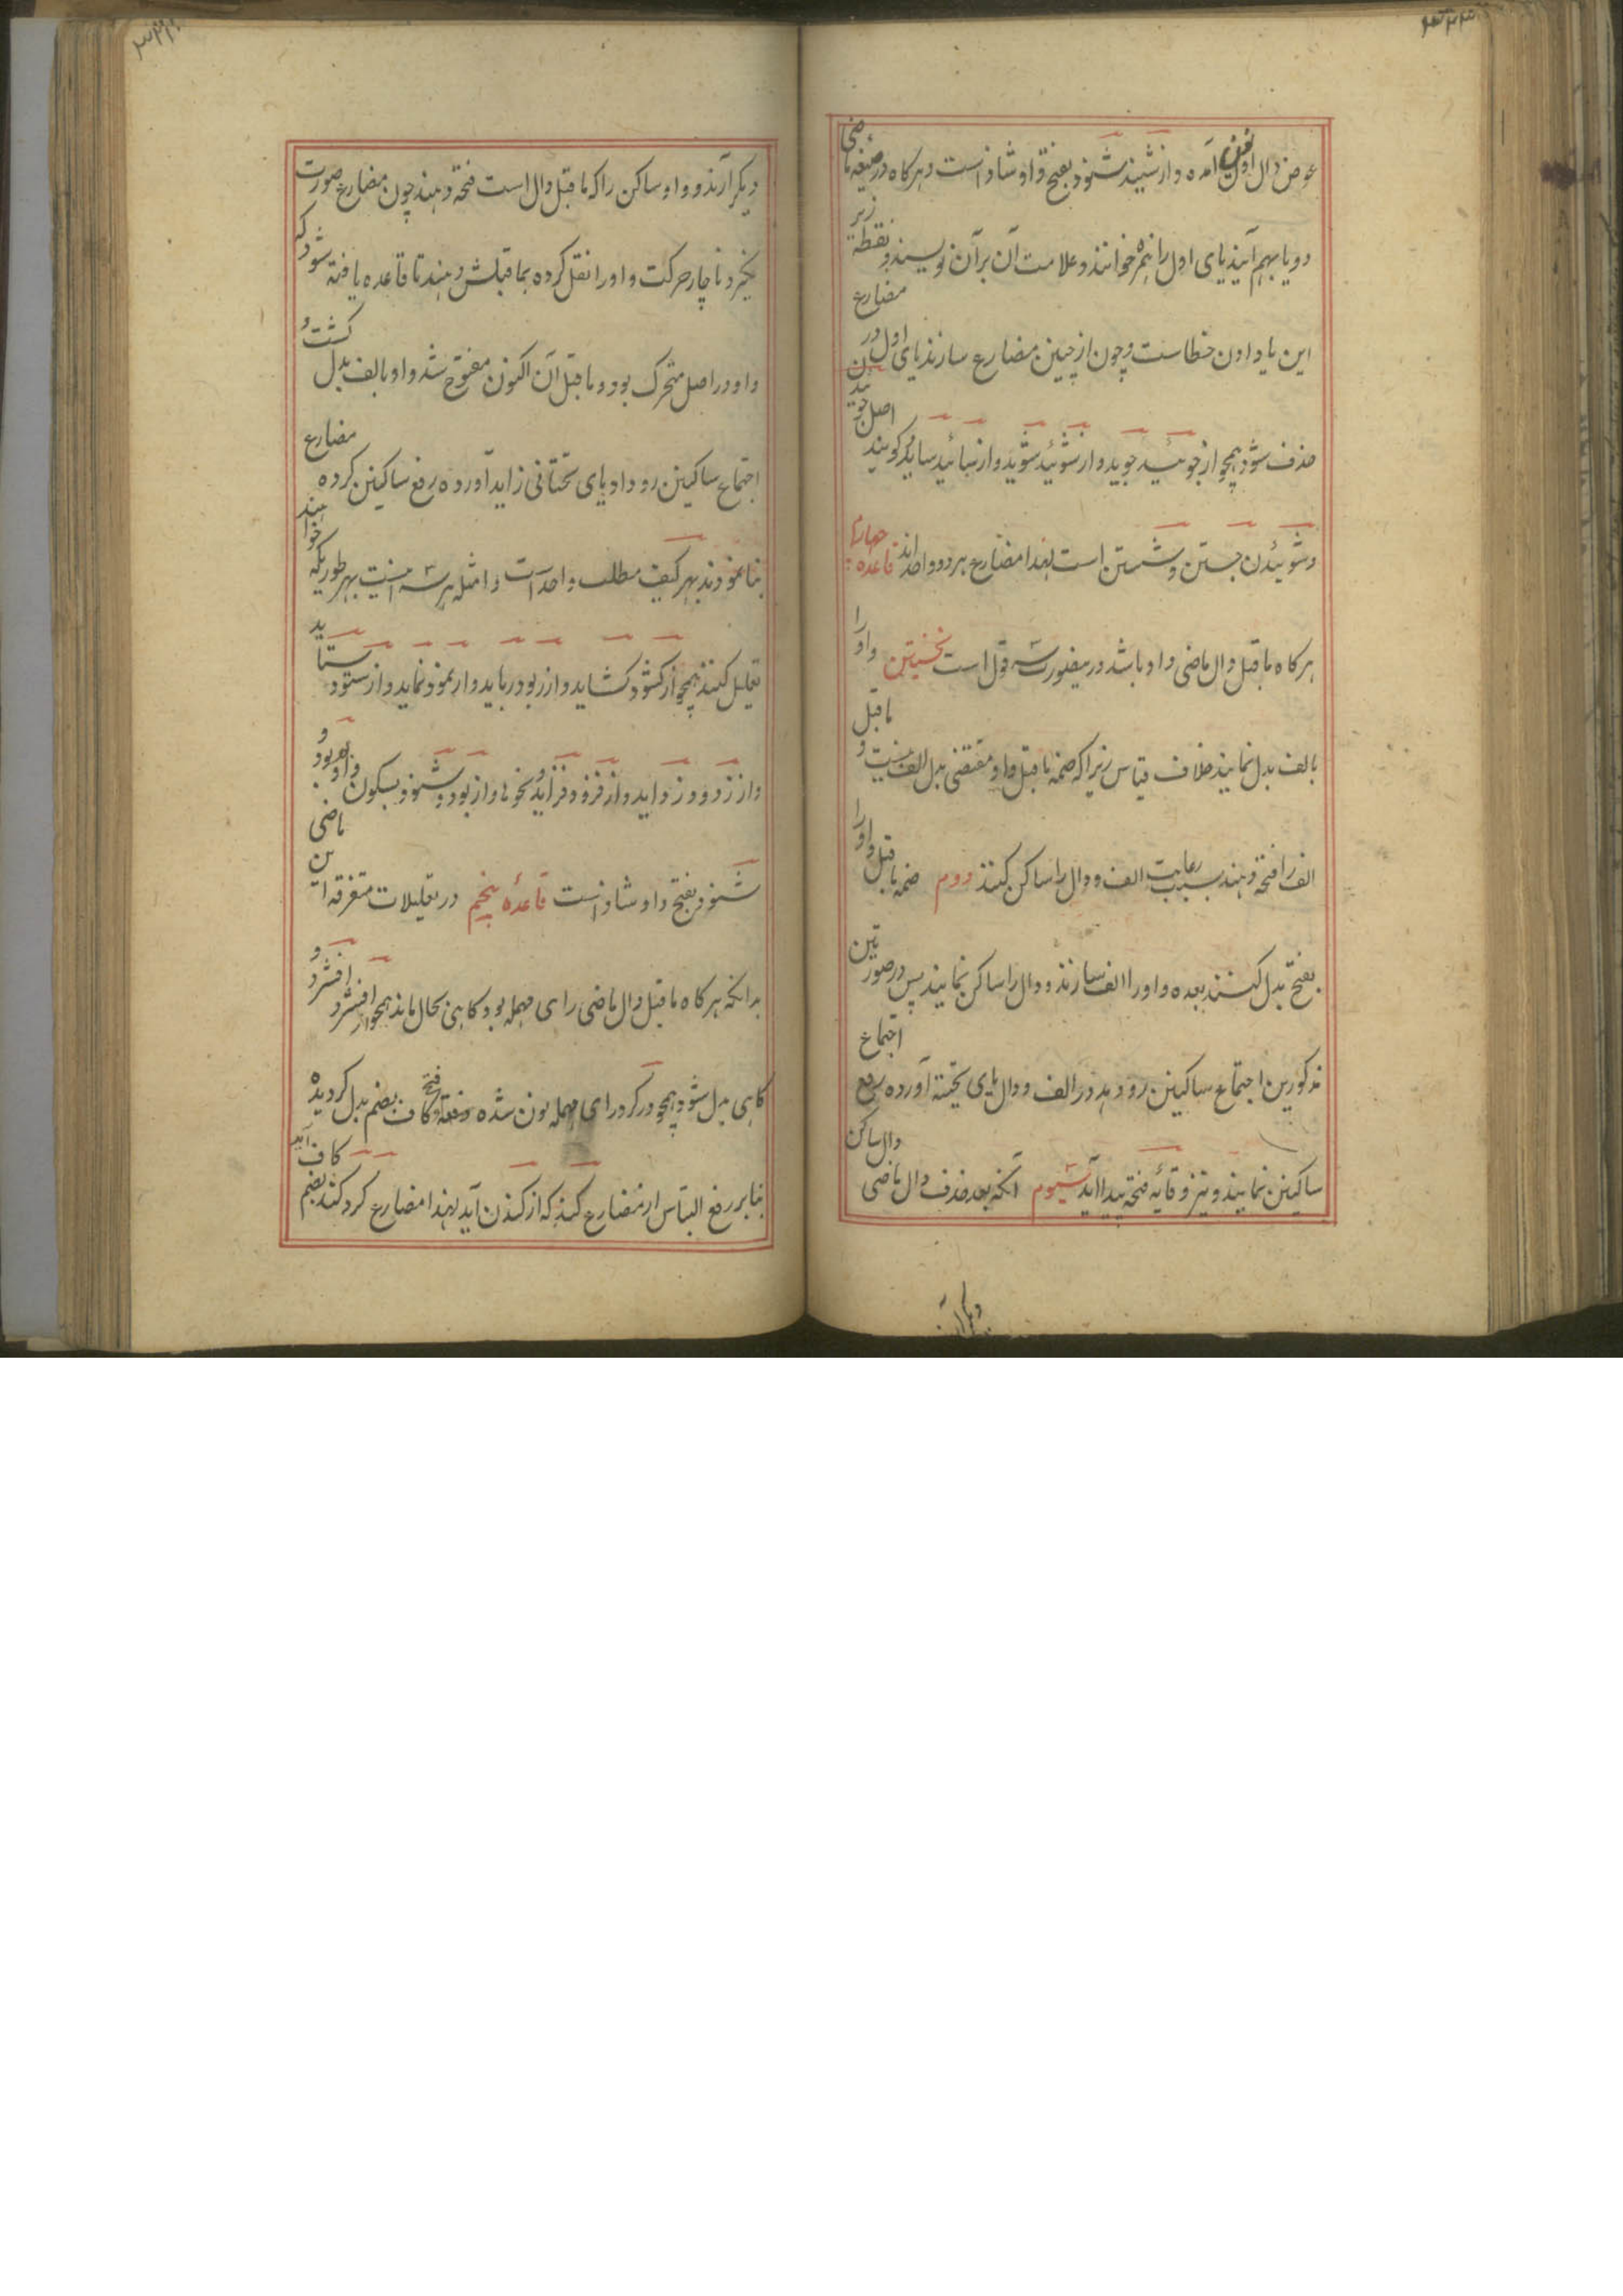 عوض دال اول آمده و از شنید شنود بفتح واو شاذ است و هرکاه در صیغه ماضی
دو یا بهم آیند یای اول را همزه خوانند و علامت آن بر آن نویسند و نقطه زیر
این یا دادن خطاست و چون از چنین مضارع سازند یای اول در مضارع
حذف شود همچو از جوئید جوید و از شوئید شوید و از سائید ساید و کویند اصل جوئیدن
و شوئیدن جستن و شستن است لهذا مضارع هر دو واحد اند قاعده چهارم
هرکاه ما قبل دال ماضی واو باشد درینصورت سه قول است نخستین واو را
بالف بدل نمایند خلاف قیاس زیرا که ضمه ما قبل واو مقتضی بدل الف نیست و ما قبل
الف را فتحه دهند بسبب رعایت الف و دال را ساکن کنند دوم ضمه ما قبل واو را
بفتح بدل کنند بعده واو را الف سازند و دال را ساکن نمایند پس در صورتین
مذکورین اجتماع ساکنین رو دهد در الف و دال یای تحتیه آورده رفع اجتماع
ساکنین نمایند و نیز وقایه فتحه پیدا آید سیوم آنکه بعد حذف دال ماضی دال ساکن
دیکر آرند
دیکر آرند و واو ساکن را که ما قبل دال است فتحه دهند چون مضارع صورت
نکیرد ناچار حرکت واو را نقل کرده بما قبلش دهند تا قاعده یافته شود که
واو در اصل متحرک بود و ما قبل آن اکنون مفتوح شد واو بالف بدل کشت و
اجتماع ساکنین رو داد یای تحتانی زاید آورده رفع ساکنین کرده مضارع
بنا نمودند بهر کیف مطلب واحد است و امثله هر سه اینست بهر طوریکه خواهند
تعلیل کنند همچو از کشود کشاید و از ربود رباید و از نمود نماید و از ستود ستاید
و از زدود زداید و از فزود فزاید و نحوها و از بود بود و شنود بسکون واو
شنود بفتح واو شاذ است قاعده پنجم در تعلیلات متفرقه
بدانکه هرکاه ما قبل دال ماضی رای مهمله بود کاهی بحال ماند همچو از افشرد افشرد و
کاهی بدل شود همچو در کرد رای مهمله نون شده و فتحه کاف بضم بدل کردیده
بنابر رفع التباس از مضارع کند که از کندن آید لهذا مضارع کرد کند بضم کاف آید